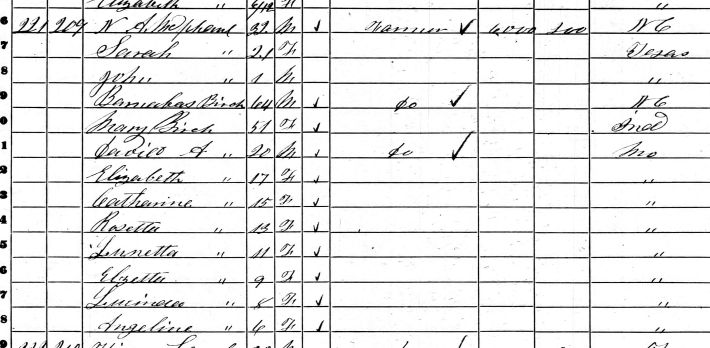 Elizabeth " 6/12 F "
6 221 209 N A McPhaul 32 M Farmer ✓ 6,000 200 N C
7 Sarah " 21 F Texas
8 John " 1 M "
9 Barnabas Birch 64 M ✓ do ✓ N C
0 Mary Birch 51 F ✓ Ind
1 A " 20 M ✓ do ✓ Mo
2 Elizabeth " 17 F ✓ "
3 Catharine " 15 F ✓ "
4 Rosetta " 13 F ✓ "
5 Lunetta " 11 F ✓ "
6 Elzetta " 9 F ✓ "
7 Lucinda " 8 F ✓ "
8 Angeline " 6 F ✓ "
9